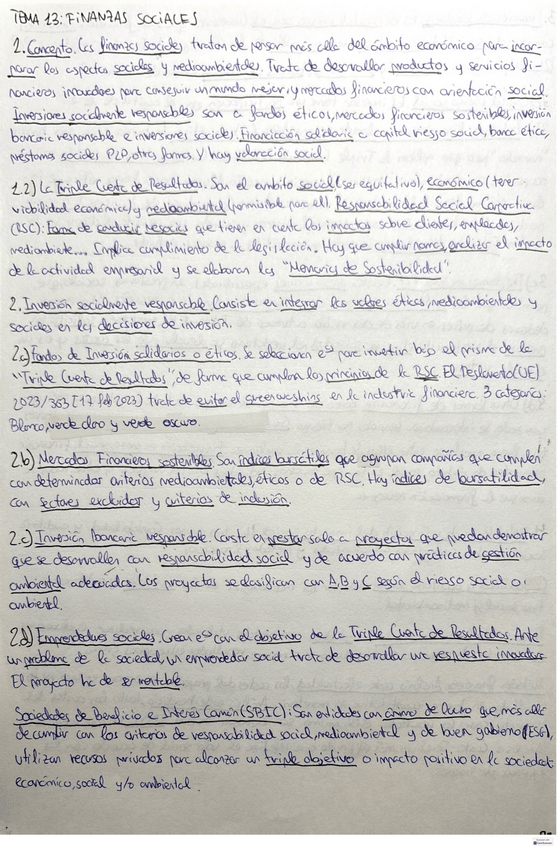 TEMA 13: FINANZAS SOCIALES
1. Concepto. Las finanzas sociales tratan de pensar más allá del ámbito económico para incor-
porar los aspectos sociales y medioambientales. Trata de desarrollar productos y servicios fi-
nancieros innovadores para conseguir un mundo mejor, y mercados financieros con orientación social.
Inversiones socialmente responsables son a fondos éticos, mercados financieros sostenibles, inversión
bancaria responsable e inversiones sociales. Financiación solidaria a capital riesgo social, banca ética,
préstamos sociales P2P, otras formas. Y hay valoración social.
1.2) La Triple Cuenta de Resultados. Son el ámbito social (ser equitativo), económico (tener
viabilidad económica) y medioambiental (permisible para él). Responsabilidad Social Corporativa
(RSC): Forma de conducir negocios que tienen en cuenta los impactos sobre clientes, empleados,
medioambiente... Implica cumplimiento de la legislación. Hay que cumplir normas, analizar el impacto
de la actividad empresarial y se elaboran las "Memorias de Sostenibilidad".
2. Inversión socialmente responsable. Consiste en integrar los valores éticos, medioambientales y
sociales en las decisiones de inversión.
2.a) Fondos de Inversión solidarios o éticos. Se seleccionan eˢ para invertir bajo el prisma de la
"Triple Cuenta de Resultados", de forma que cumplan los principios de la RSC. El Reglamento (UE)
2023/363 [17 feb 2023) trata de evitar el greenwashing en la industria financiera. 3 categorías:
Blanco, verde claro y verde oscuro.
2.b) Mercados Financieros sostenibles. Son índices bursátiles que agrupan compañías que cumplen
con determinados criterios medioambientales, éticos o de RSC. Hay índices de bursatilidad,
con sectores excluidos y criterios de inclusión.
2.c) Inversión bancaria responsable. Consiste en prestar solo a proyectos que puedan demostrar
que se desarrollen con responsabilidad social y de acuerdo con prácticas de gestión
ambiental adecuadas. Los proyectos se clasifican con A, B y C según el riesgo social o
ambiental.
2.d) Emprendedores sociales. Crean eˢ con el objetivo de la Triple Cuenta de Resultados. Ante
un problema de la sociedad, un emprendedor social trata de desarrollar una respuesta innovadora.
El proyecto ha de ser rentable.
Sociedades de Beneficio e Interés Común (SBIC): Son entidades con ánimo de lucro que, más allá
de cumplir con los criterios de responsabilidad social, medioambiental y de buen gobierno (ESG),
utilizan recursos privados para alcanzar un triple objetivo o impacto positivo en la sociedad:
económico, social y/o ambiental.